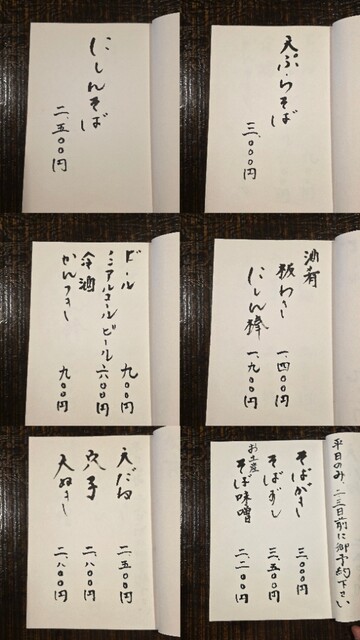 にしんそば
二、五〇〇円
天ぷらそば
三、〇〇〇円
ビール 九〇〇円
ノンアルコールビール 六〇〇円
冷酒
かんつき 九〇〇円
酒肴
板わさ 一、四〇〇円
にしん棒 一、九〇〇円
天だね 二、五〇〇円
穴子 二、八〇〇円
天ぬき 二、八〇〇円
平日のみ、二、三日前に御予約下さい
そばがき 三、〇〇〇円
そばずし 三、五〇〇円
お土産
そば味噌 二、二〇〇円